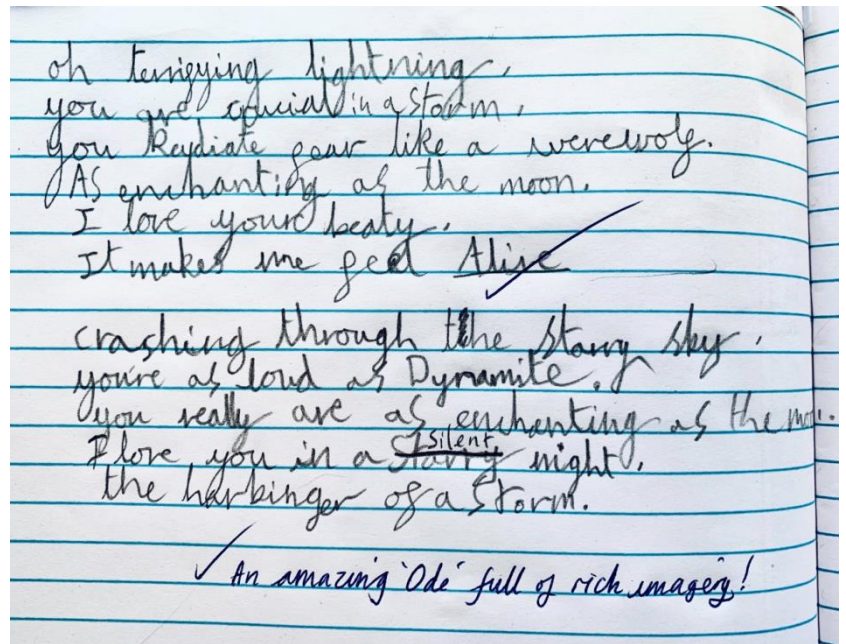 oh terrifying lightning,
you are crucial in a storm,
you Radiate fear like a werewolf.
AS enchanting as the moon.
I love youre beaty.
It makes me feel Alive
crashing through the starry sky.
you're as loud as Dynamite.
you really are as enchanting as the moon.
I love you in a silent night.
the harbinger of a storm.
An amazing 'Ode' full of rich imagery!